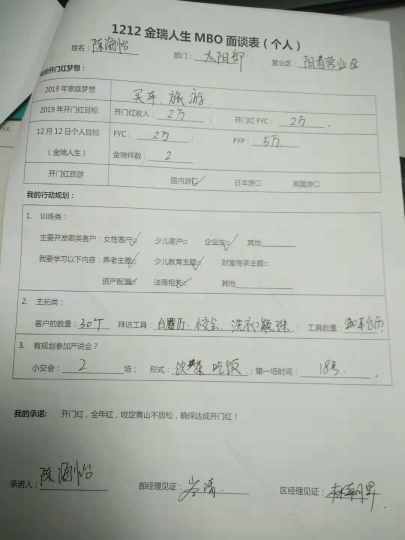 1212 金瑞人生 MBO 面谈表（个人）
姓名：陈海怡 部门：太阳部 营业区：阳春营业区
我的开门红梦想：
2019 年家庭梦想 买车、旅游
2019 年开门红目标 开门红收入：2万 开门红 FYC：2万
12 月 12 日个人目标 FYC：2万 FYP：5万
（金瑞人生） 金瑞件数：2
开门红旅游 国内游☑ 日本游□ 英国游□
我的行动规划：
1. 训练类：
主要开发哪类客户：女性客户☑ 少儿客户□ 企业主☑ 其他
我要学习以下内容：养老主题☑ 少儿教育主题☑ 财富传承主题□
资产配置☑ 法商相关☑ 其他
2. 主拓类：
客户的数量：30个 拜访工具： 洗衣 工具数量：
3. 有规划参加产说会？
小交会：2 场； 形式：饮茶 吃饭；第一场时间：18号.
我的承诺： 开门红，全年红，咬定青山不放松，确保达成开门红！
承诺人：陈海怡 部经理见证： 区经理见证：